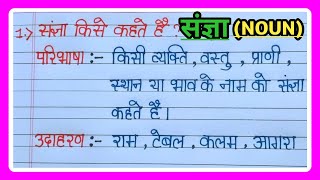 संज्ञा (NOUN)
1.) संज्ञा किसे कहते हैं ?
परिभाषा :- किसी व्यक्ति, वस्तु, प्राणी,
स्थान या भाव के नाम को संज्ञा
कहते हैं।
उदाहरण :- राम, टेबल, कलम, आगरा